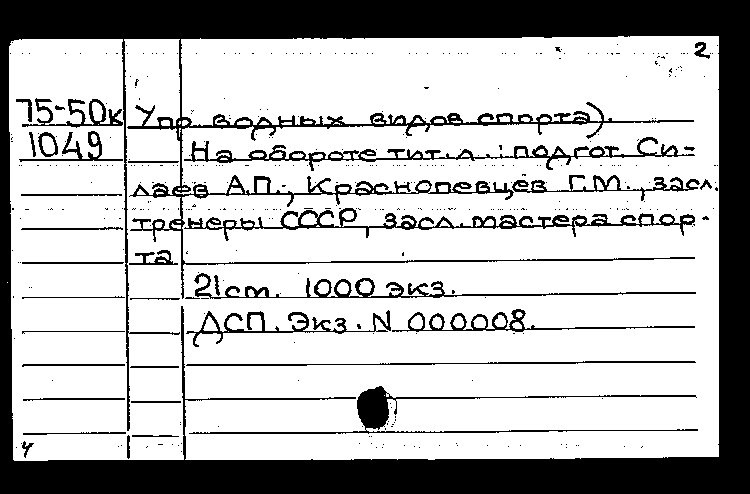 2
75-50к Упр водных видов спорта).
1049 На обороте тит. л.: подгот. Си-
лаев А.П., Краснопевцев Г.М., засл.
тренеры СССР, засл. мастера спор-
та.
21 ст. 1000 экз.
ДСП. Экз. N 000008.